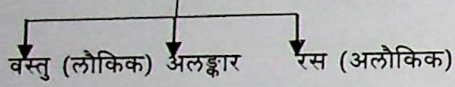 वस्तु (लौकिक) अलङ्कार रस (अलौकिक)